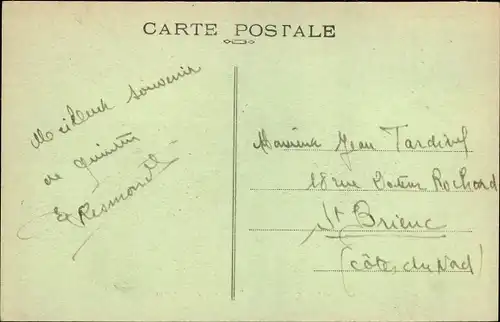 CARTE POSTALE
Meilleur souvenir
de Quintin
Monsieur Jean Tardivel
18 rue Docteur Rochard
St Brieuc
(Côtes du Nord)